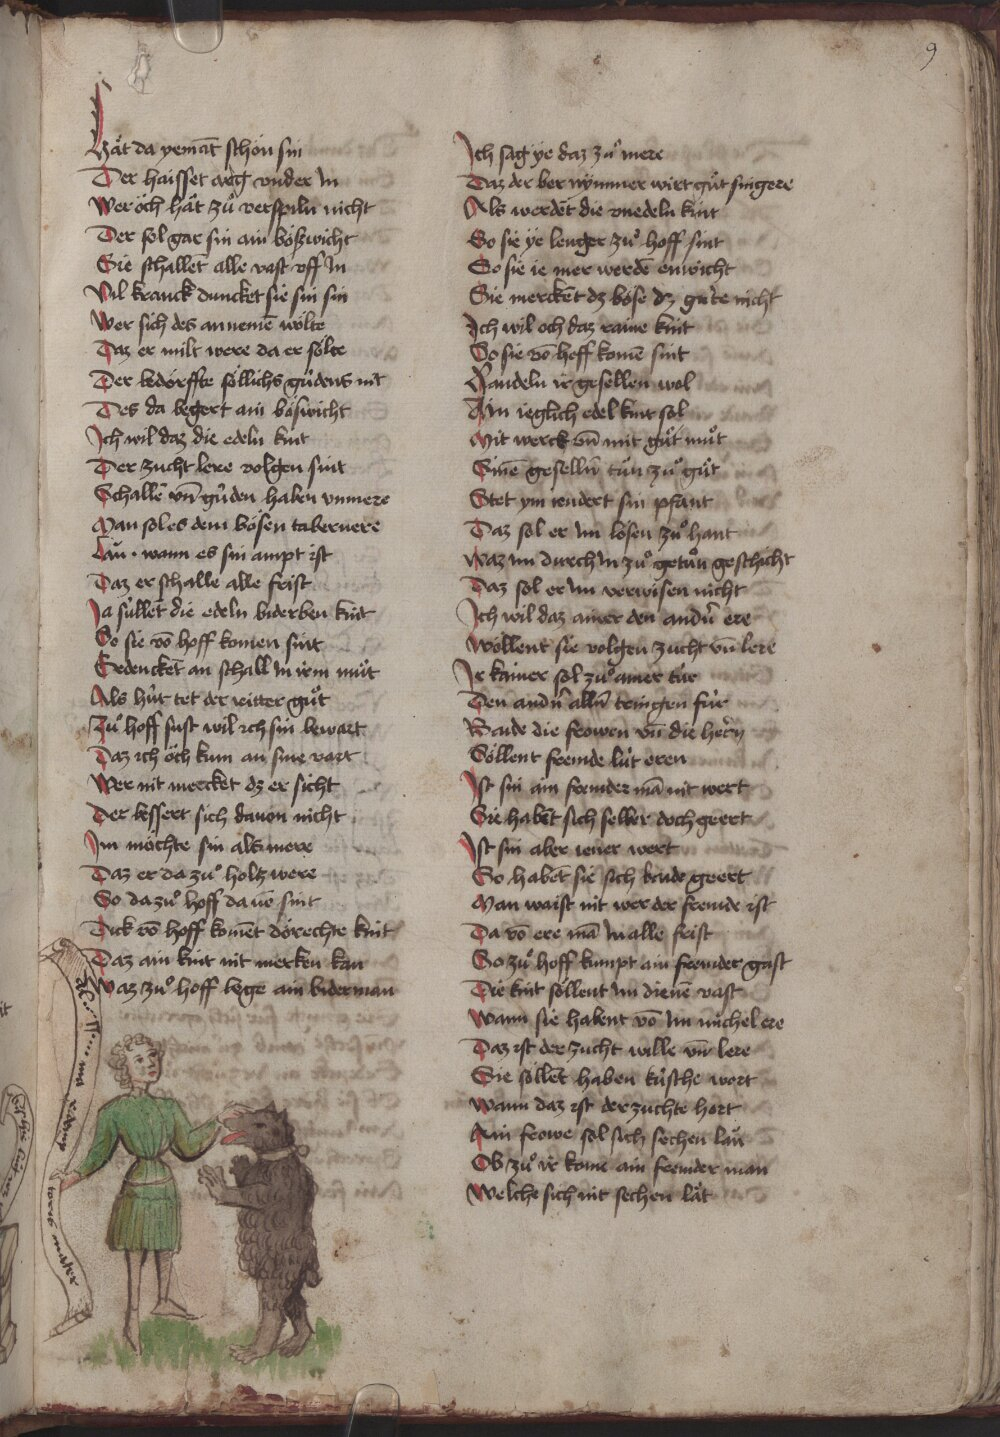 9
Hät da yemāt schön sin
Der haisset arg vnder In
Wer öch hät zuͦ verspiln nicht
Der sol gar sin ain bößwicht
Sie schallēt alle vast vff In
Vil kranck duncket sie sin sin
Wer sich des annemē wölte
Daz er milt were da er sölte
Der bedörffte söllichs güdens nit
Des da begert ain böswicht
Ich wil daz die edeln kint
Der zucht lere volgen sint
Schallē vn̄ güden haben vnmere
Man sol es dem bösen tabernere
Lāu · wann es sin ampt ist
Daz er schalle alle frist
Ja süllēt die edeln biderben kint
So sie vō hoff komen sint
Gedenckēt an schall In irm müt
Als hüt tet der ritter guͦt
Zuͦ hoff sust wil ich sin bewart
Daz ich öch kum an sine vart
Wer nit mercket dz er sicht
Der bessert sich dauon nicht
Im möchte sin als mere
Daz er da zuͦ holtz were
So da zuͦ hoff da vē sint
Dick vō hoff komēt dörechte kint
Daz ain kint nit merken kan
Waz zuͦ hoff bege ain biderman
Ich sag ye daz zuͦ mere
Daz der ber nymmer wirt guͦt singere
Als werdēt die vnedeln kint
So sie ye lenger zuͦ hoff sint
So sie ie mer werdē enwicht
Sie merckēt dz böse dz guͦte nicht
Ich wil och daz raine kint
So sie vō hoff komē sint
Handeln ir gesellen wol
Ain ieglich edel kint sol
Mit werck vn̄ mit guͦt muͦt
Sinē gesellū tuͦn zuͦ guͦt
Stet ym iendert sin pfant
Daz sol er Im lösen zuͦ hant
Waz im durch In zuͦ getuͦn geschicht
Daz sol er Im verwisen nicht
Ich wil daz ainer den andn̄ ere
Wöllent sie volgen zucht vn̄ lere
Ir kainer sol zuͦ ainer tür
Den andn̄ alln̄ tringen für
Baide die frowen vn̄ die hern̄
Söllent fremde lüt eren
Ist sin ain fremder mā nit wert
Sie habēt sich selber doch geert
Ist sin aber iener wert
So habēt sie sich baide geert
Man waist nit wer der fremde ist
Da vō ere mā In alle frist
So zuͦ hoff kumpt ain fremder gast
Die kint söllent Im dienē vast
Wann sie habent vō Im michel ere
Daz ist der zucht wille vn̄ lere
Sie söllēt haben küsche wort
Wann daz ist der zuchte hort
Ain frowe sol sich sechen lān
Ob zuͦ ir kome ain fremder man
Welche sich nit sechen lät